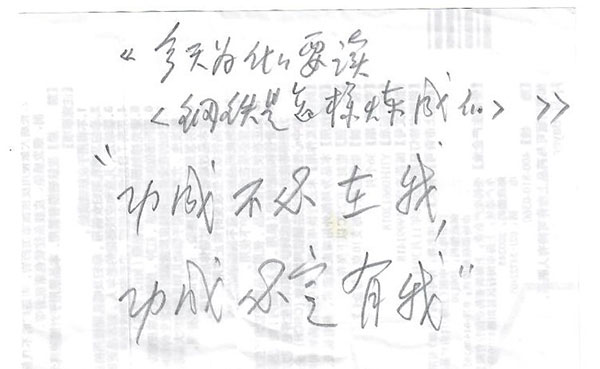 《今天为什么要读
<钢铁是怎样炼成的>》
“功成不必在我,
功成必定有我”